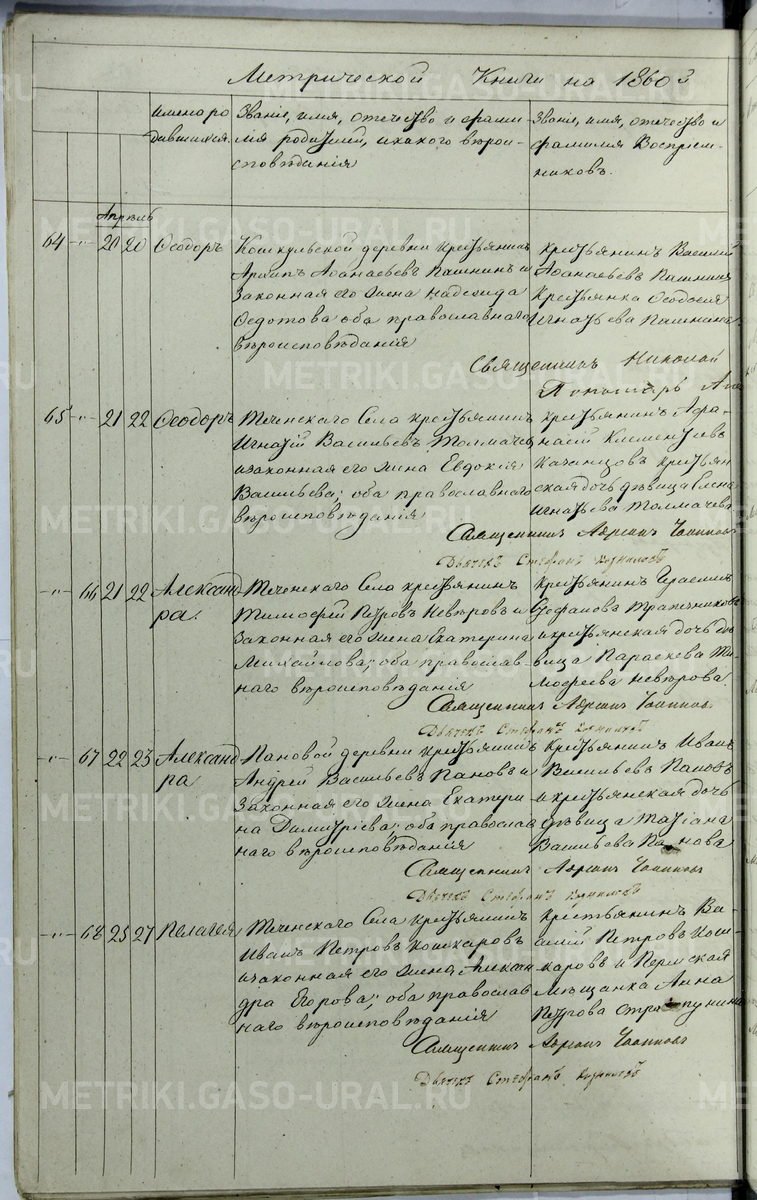 Метрической Книги на 1860 г
имена ро
дившихся.
Званіе, имя, отечество и фами-
лія родителей, и какого вѣрои-
сповѣданія
Званіе, имя, отечество и
фамилія Воспріем-
никовъ.
Апрѣль
64 -"- 20 20 Ѳеодоръ
Кошкульской деревни крестьянинъ
Архипъ Аѳанасьевъ Пашнинъ и
законная его жена Надежда
Ѳедотова оба православнаго
вѣроисповѣданія
крестьянинъ Василій
Аѳанасьевъ Пашнинъ
Крестьянка Ѳеодосія
Игнатьева Пашнина
Священникъ Николай
Пономарь
65 -"- 21 22 Ѳеодоръ
Теченскаго Села крестьянинъ
Игнатій Васильевъ Толмачев
и законная его жена Евдокія
Васильева; оба православнаго
вѣроисповѣданія
крестьянинъ Афа-
насій Климентьевъ
Казанцовъ крестьян
ская дочь дѣвица Елена
Игнатьева Толмачева
Священникъ Адріанъ
Дьячекъ Стефанъ
-"- 66 21 22 Александ
ра.
Теченскаго Села крестьянинъ
Тимофей Петровъ Невѣровъ и
законная его жена Екатерина
Михайлова; оба православ-
наго вѣроисповѣданія
крестьянинъ Герасимъ
Стефановъ Трапезниковъ
и крестьянская дочь дѣ
вица Параскева Ти-
мофеева Невѣрова.
Священникъ Адріанъ
Дьячекъ Стефанъ
-"- 67 22 23 Александ
ра
Пановой деревни крестьянинъ
Андрей Васильевъ Пановъ и
законная его жена Екатери
на Димитріева; оба православ
наго вѣроисповѣданія
крестьянинъ Иванъ
Васильевъ Пановъ
и крестьянская дочь
дѣвица Татіана
Васильева Панова
Священникъ Адріанъ
Дьячекъ Стефанъ
-"- 68 25 27 Пелагея
Теченскаго Села крестьянинъ
Иванъ Петровъ Кошкаровъ
и законная его жена Александ
дра Егорова; оба православ
наго вѣроисповѣданія
крестьянинъ Ва-
силій Петровъ Кош-
каровъ и Пермская
Мѣщанка Анна
Петрова
Священникъ Адріанъ
Дьячекъ Стефанъ
METRIKI.GASO-URAL.RU